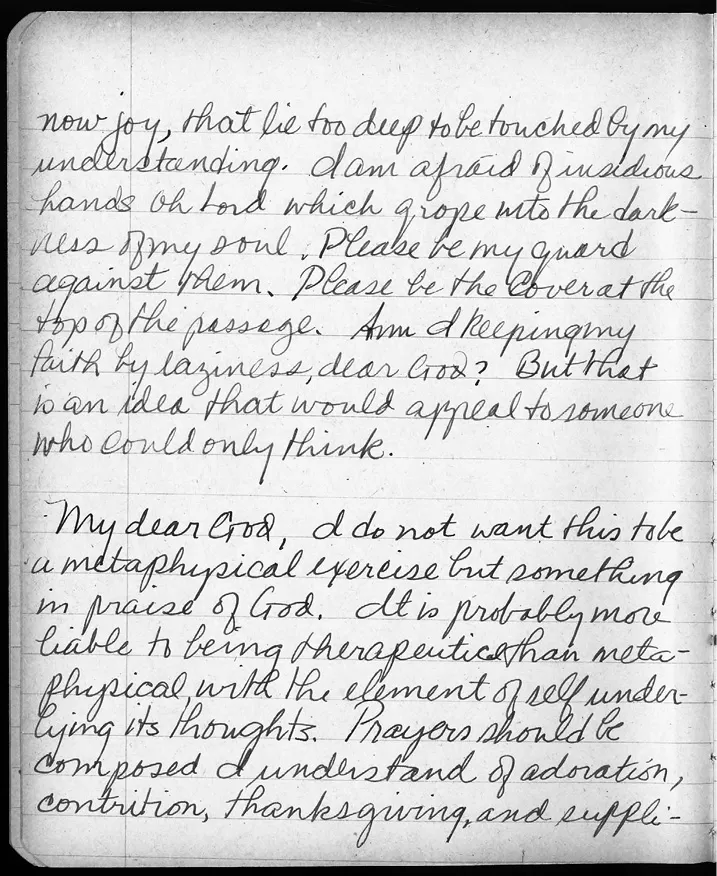 now joy, that lie too deep to be touched by my
understanding. I am afraid of insidious
hands Oh Lord which grope into the dark-
ness of my soul. Please be my guard
against them. Please be the Cover at the
top of the passage. Am I keeping my
faith by laziness, dear God? But that
is an idea that would appeal to someone
who could only think.

My dear God, I do not want this to be
a metaphysical exercise but something
in praise of God. It is probably more
liable to being therapeutic than meta-
physical, with the element of self under-
lying its thoughts. Prayers should be
composed I understand of adoration,
contrition, thanksgiving, and suppli-